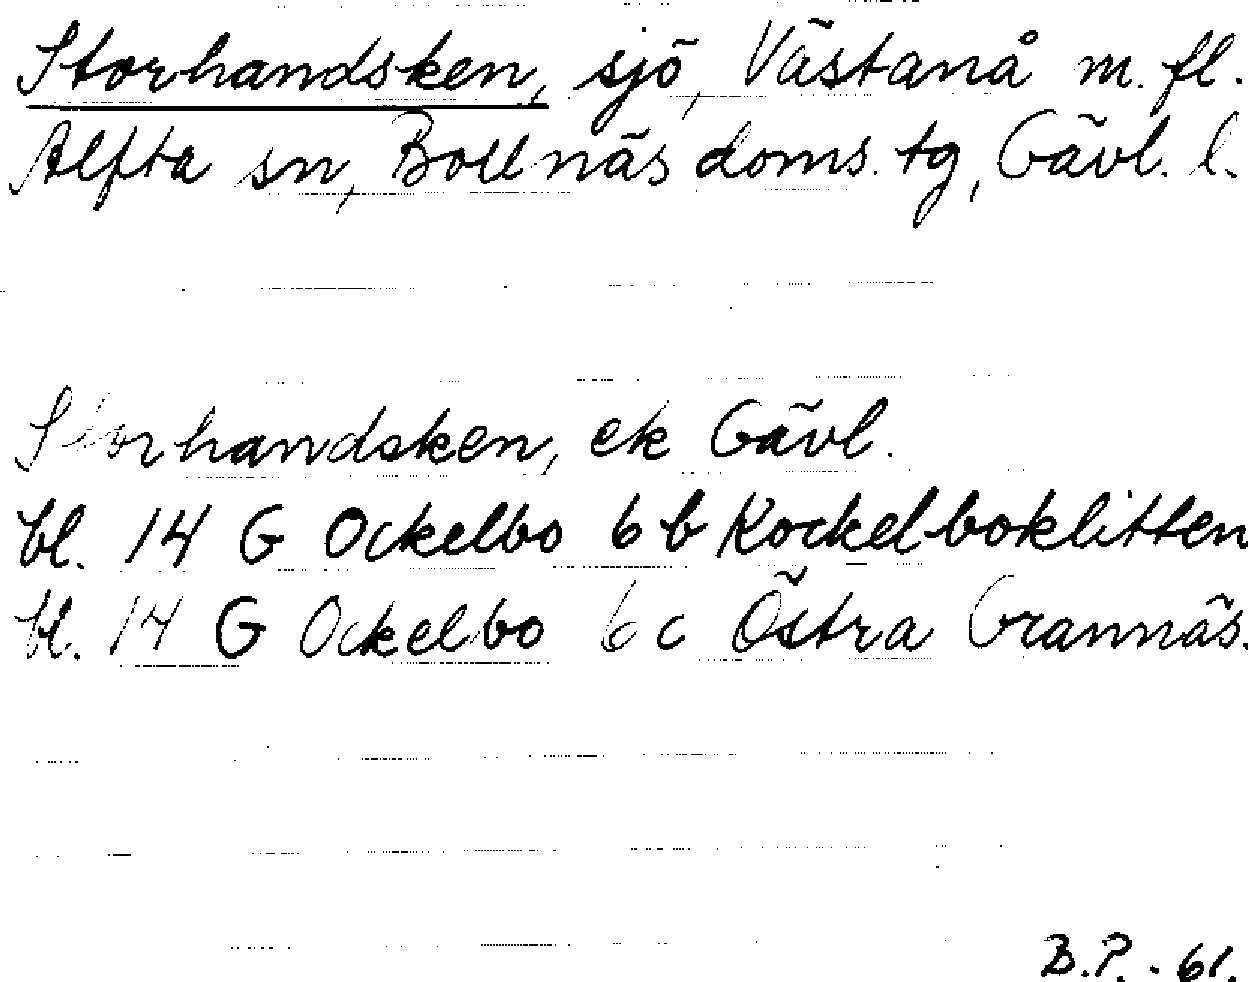 Storhandsken, sjö, Västanå m. fl.
Alfta sn, Bollnäs doms. tg, Gävl. l.
Storhandsken, ek Gävl.
bl. 14 G Ockelbo 6 b Kockelboklitten
bl. 14 G Ockelbo 6 c Östra Grannäs.
B.P. - 61.